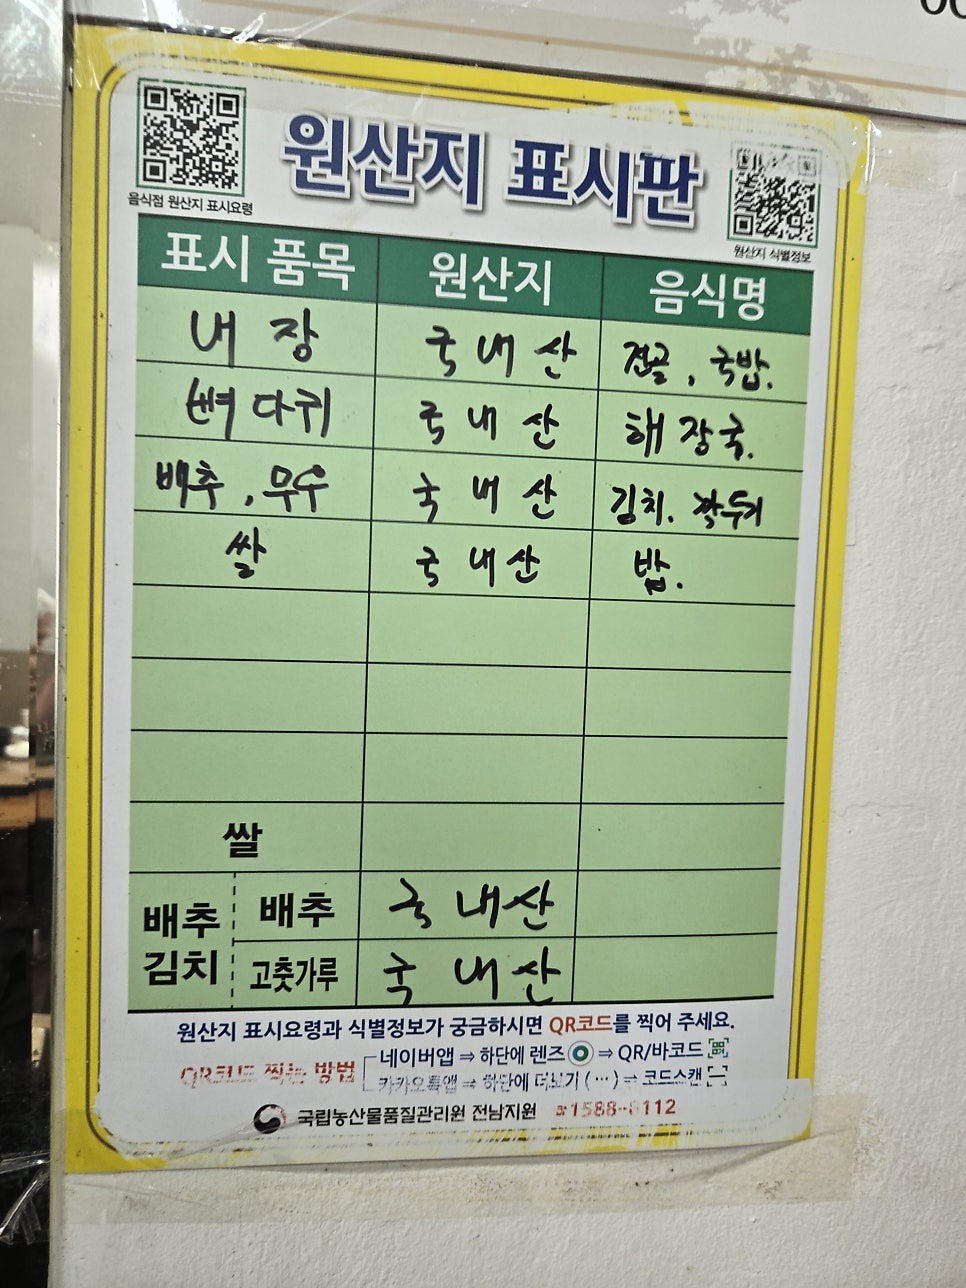 원산지 표시판
음식점 원산지 표시요령
원산지 식별정보
표시 품목 원산지 음식명
내장 국내산 전골, 국밥.
뼈다귀 국내산 해장국.
배추, 무우 국내산 김치. 깍두기
쌀 국내산 밥.
쌀
배추김치 배추 국내산
고춧가루 국내산
원산지 표시요령과 식별정보가 궁금하시면 QR코드를 찍어 주세요.
QR코드 찍는 방법
네이버앱 ⇒ 하단에 렌즈 ⇒ QR/바코드
카카오톡앱 ⇒ 하단에 더보기 (···) ⇒ 코드스캔
국립농산물품질관리원 전남지원 ☎1588-8112